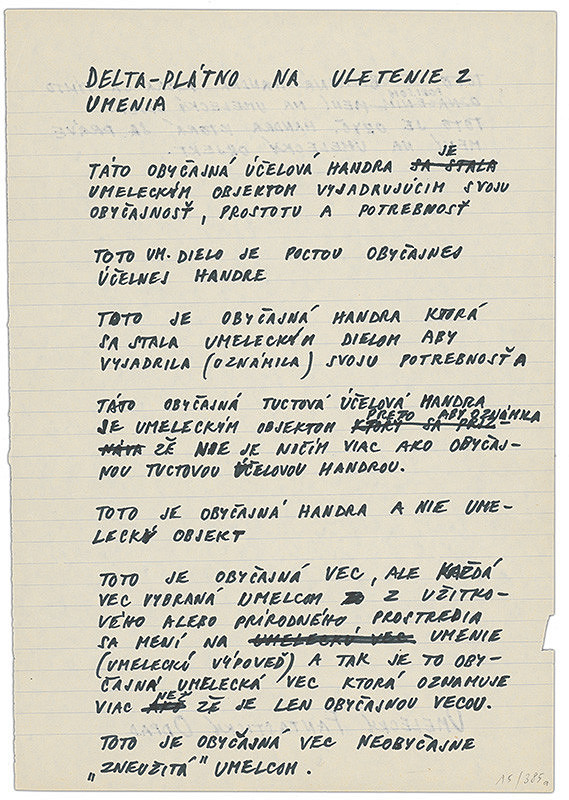 DELTA-PLÁTNO NA ULETENIE Z
UMENIA
TÁTO OBYČAJNÁ ÚČELOVÁ HANDRA SA STALA JE
UMELECKÝM OBJEKTOM VYJADRUJÚCIM SVOJU
OBYČAJNOSŤ, PROSTOTU A POTREBNOSŤ
TOTO UM. DIELO JE POCTOU OBYČAJNEJ
ÚČELNEJ HANDRE
TOTO JE OBYČAJNÁ HANDRA KTORÁ
SA STALA UMELECKÝM DIELOM ABY
VYJADRILA (OZNÁMILA) SVOJU POTREBNOSŤ
TÁTO OBYČAJNÁ TUCTOVÁ ÚČELOVÁ HANDRA
JE UMELECKÝM OBJEKTOM KTORÝ SA PRIZ- PRETO ABY OZNÁMILA
NÁVA ŽE NIE JE NIČÍM VIAC AKO OBYČAJ-
NOU TUCTOVOU ÚČELOVOU HANDROU.
TOTO JE OBYČAJNÁ HANDRA A NIE UME-
LECKÝ OBJEKT
TOTO JE OBYČAJNÁ VEC, ALE KAŽDÁ
VEC VYBRANÁ UMELCOM Z UŽITKO-
VÉHO ALEBO PRÍRODNÉHO PROSTREDIA
SA MENÍ NA UMELECKÚ VEC UMENIE
(UMELECKÚ VÝPOVEĎ) A TAK JE TO OBY-
ČAJNÁ UMELECKÁ VEC KTORÁ OZNAMUJE
VIAC AKO NEŽ ŽE JE LEN OBYČAJNOU VECOU.
TOTO JE OBYČAJNÁ VEC NEOBYČAJNE
„ZNEUŽITÁ" UMELCOM.
15/385a